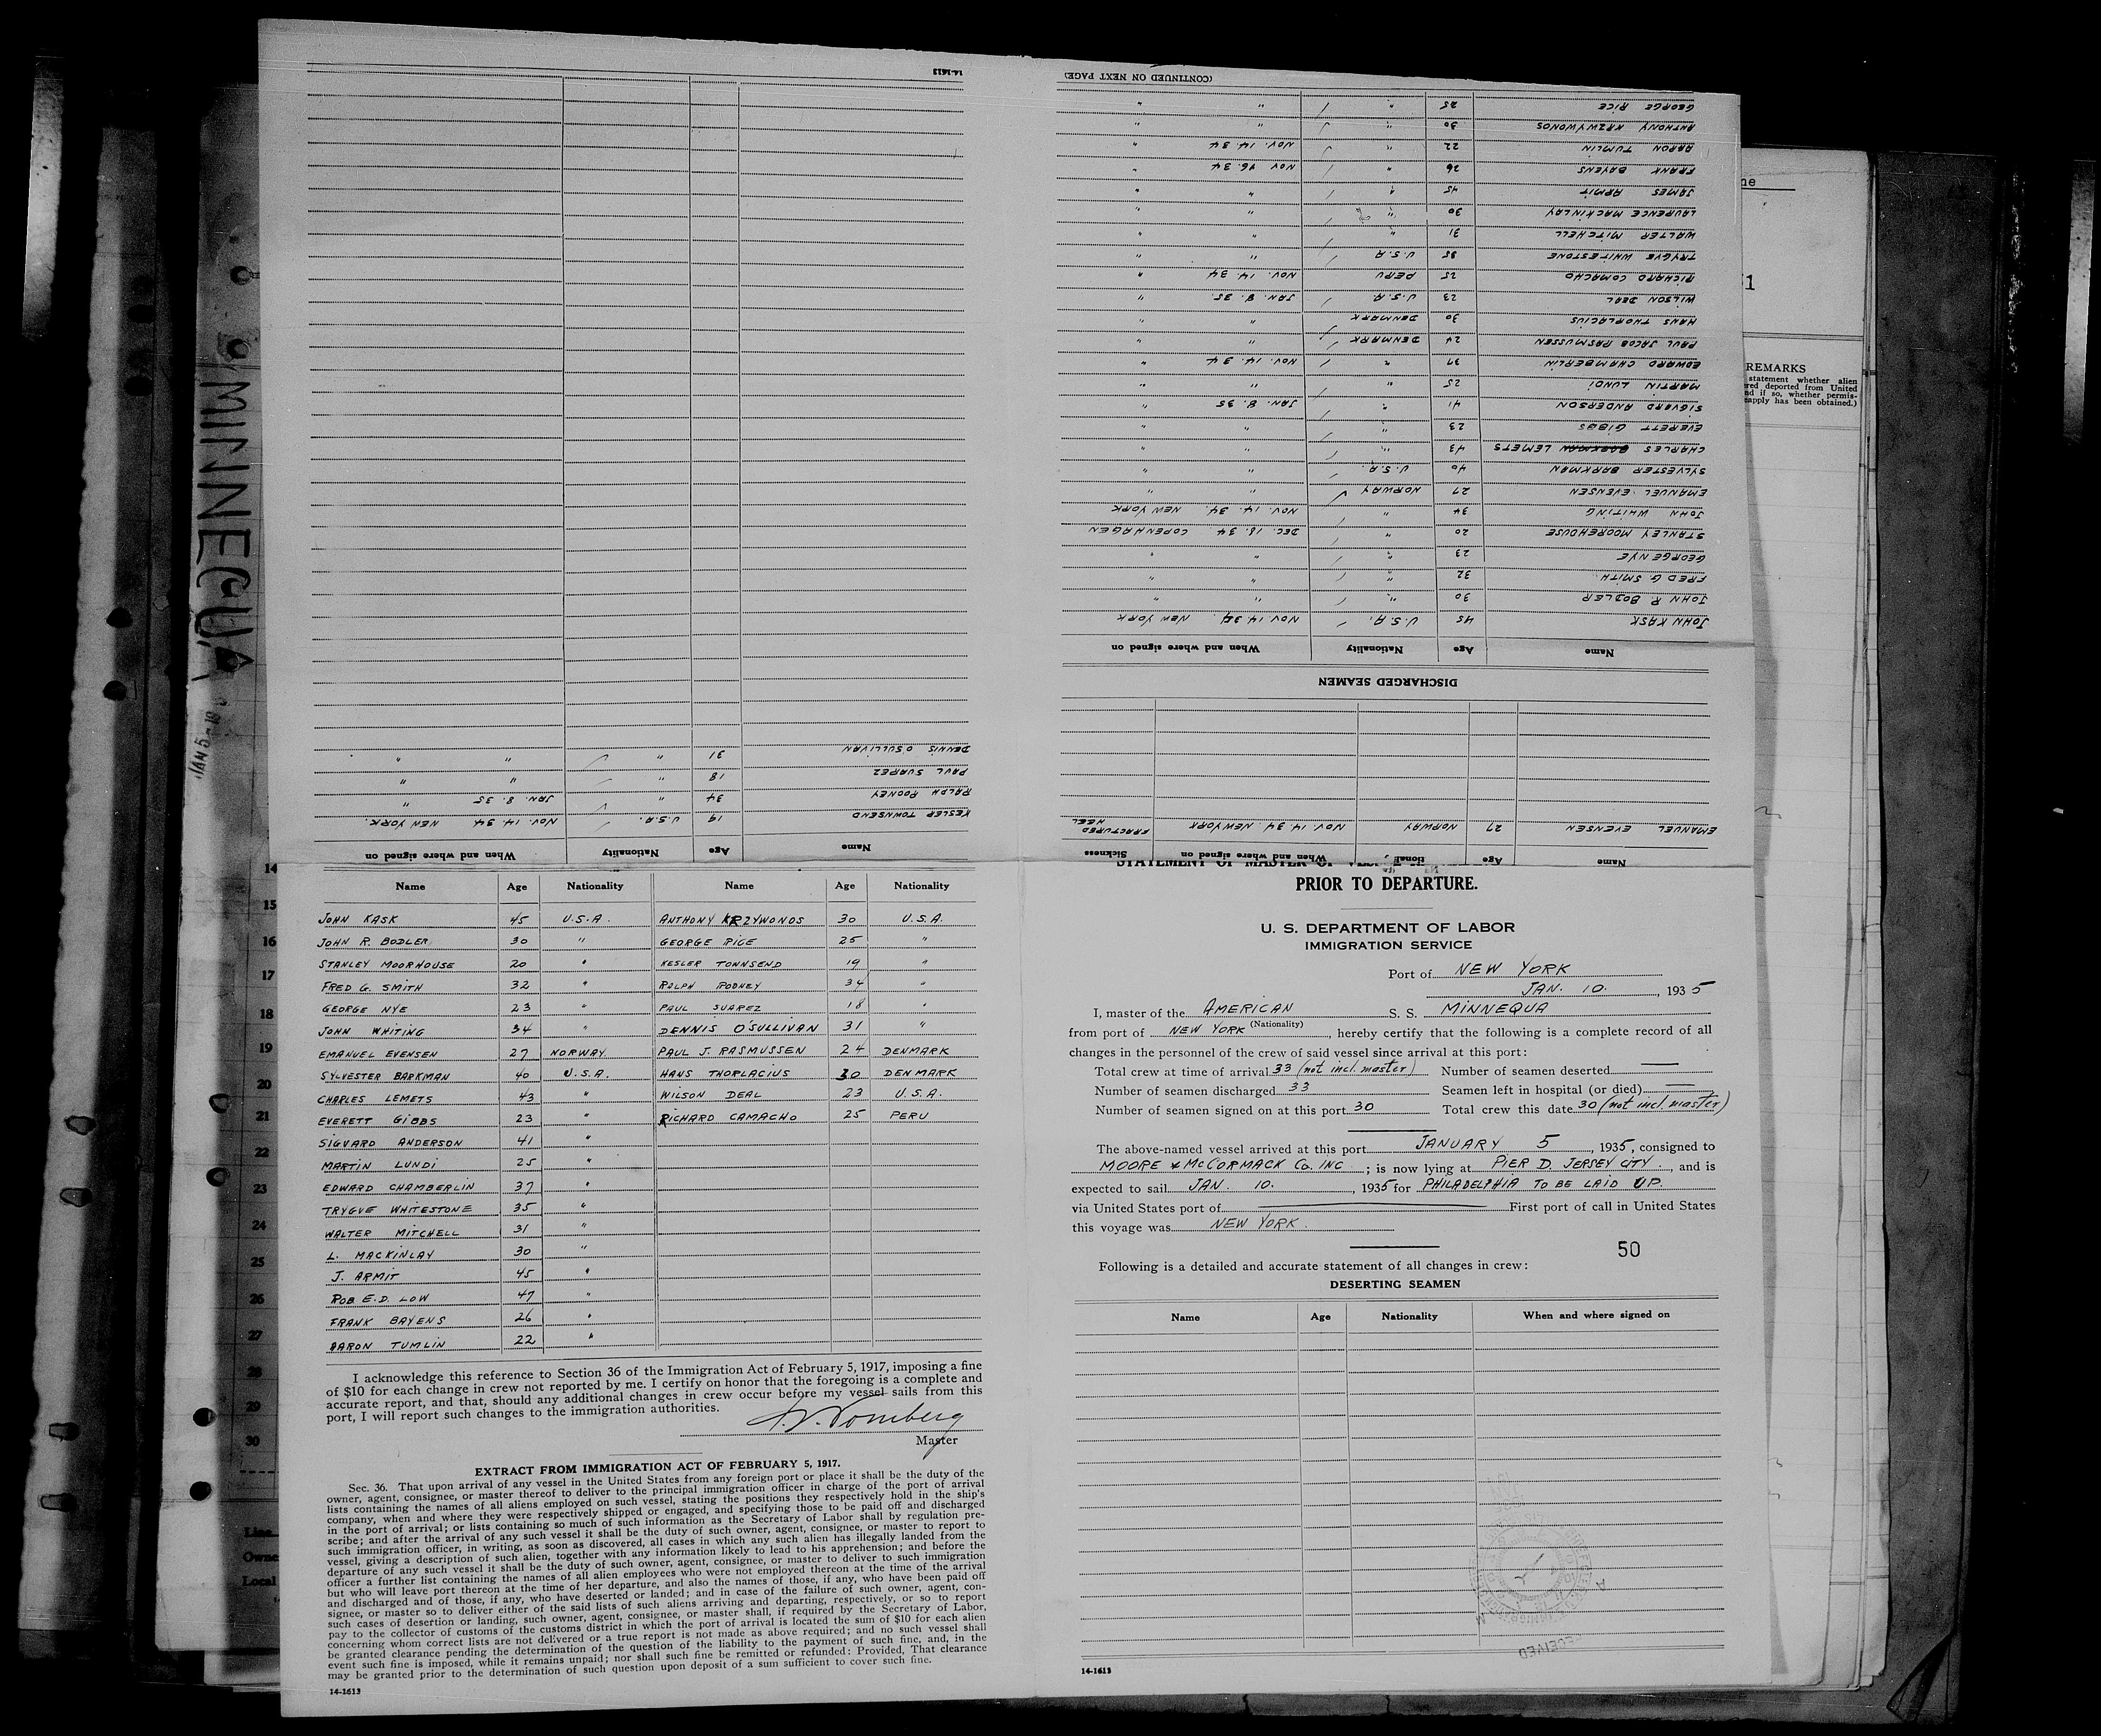 STATEMENT OF MASTER OF
PRIOR TO DEPARTURE.
U. S. DEPARTMENT OF LABOR
IMMIGRATION SERVICE
Port of NEW YORK
JAN. 10. , 1935
I, master of the AMERICAN S. S. MINNEQUA
(Nationality)
from port of NEW YORK, hereby certify that the following is a complete record of all
changes in the personnel of the crew of said vessel since arrival at this port:
Total crew at time of arrival 33 (not incl. master) Number of seamen deserted —
Number of seamen discharged 33 Seamen left in hospital (or died) —
Number of seamen signed on at this port 30 Total crew this date 30 (not incl. master)
The above-named vessel arrived at this port JANUARY 5, 1935, consigned to
MOORE & McCORMACK Co. INC ; is now lying at PIER D. JERSEY CITY. , and is
expected to sail JAN. 10. , 1935 for PHILADELPHIA TO BE LAID UP
via United States port of — First port of call in United States
this voyage was NEW YORK.
50
Following is a detailed and accurate statement of all changes in crew:
DESERTING SEAMEN
Name Age Nationality When and where signed on
RECEIVED
14-1613
Name Age Nationality When and where signed on Sickness
EMANUEL EVENSEN 27 NORWAY NOV. 14. 34 NEW YORK FRACTURED HEEL
DISCHARGED SEAMEN
Name Age Nationality When and where signed on
JOHN KASK 45 U.S.A. NOV 14. 34. NEW YORK
JOHN R. BODLER 30 " " "
FRED G. SMITH 32 " " "
GEORGE NYE 23 " " "
STANLEY MOOREHOUSE 20 " DEC. 18. 34 COPENHAGEN
JOHN WHITING 34 " NOV. 14. 34. NEW YORK
EMANUEL EVENSEN 27 NORWAY " "
SYLVESTER BARKMAN 40 U.S.A. " "
CHARLES BARKMAN LEMETS 43 " " "
EVERETT GIBBS 23 " " "
SIGVARD ANDERSON 41 " JAN. 8. 35 "
MARTIN LUNDI 25 " " "
EDWARD CHAMBERLIN 37 " NOV. 14. 34 "
PAUL JACOB RASMUSSEN 24 DENMARK " "
HANS THORLACIUS 30 DENMARK " "
WILSON DEAL 23 U.S.A. JAN. 8. 35 "
RICHARD COMACHO 25 PERU NOV. 14. 34 "
TRYGVE WHITESTONE 35 U.S.A. " "
WALTER MITCHELL 31 " " "
LAURENCE MACKINLAY 30 " " "
JAMES ARMIT 45 " " "
FRANK BAYENS 26 " NOV 16. 34 "
AARON TUMLIN 22 " NOV. 14. 34 "
ANTHONY KRZWYWONOS 30 " " "
GEORGE RICE 25 " " "
(CONTINUED ON NEXT PAGE)
Name Age Nationality When and where signed on
KESLER TOWNSEND 19 U.S.A. NOV. 14. 34 NEW YORK.
RALPH ROONEY 34 " JAN. 8. 35 "
PAUL SUAREZ 18 " " "
DENNIS O'SULLIVAN 31 " " "
14-1613
Name Age Nationality Name Age Nationality
JOHN KASK 45 U.S.A. ANTHONY KRZYWONOS 30 U.S.A.
JOHN R. BODLER 30 " GEORGE RICE 25 "
STANLEY MOORHOUSE 20 " KESLER TOWNSEND 19 "
FRED G. SMITH 32 " RALPH ROONEY 34 "
GEORGE NYE 23 " PAUL SUAREZ 18 "
JOHN WHITING 34 " DENNIS O'SULLIVAN 31 "
EMANUEL EVENSEN 27 NORWAY PAUL J. RASMUSSEN 24 DENMARK
SYLVESTER BARKMAN 40 U.S.A. HANS THORLACIUS 30 DENMARK
CHARLES LEMETS 43 " WILSON DEAL 23 U.S.A.
EVERETT GIBBS 23 " RICHARD CAMACHO 25 PERU
SIGVARD ANDERSON 41 "
MARTIN LUNDI 25 "
EDWARD CHAMBERLIN 37 "
TRYGVE WHITESTONE 35 "
WALTER MITCHELL 31 "
L. MACKINLAY 30 "
J. ARMIT 45 "
ROB E.D. LOW 47 "
FRANK BAYENS 26 "
AARON TUMLIN 22 "
I acknowledge this reference to Section 36 of the Immigration Act of February 5, 1917, imposing a fine
of $10 for each change in crew not reported by me. I certify on honor that the foregoing is a complete and
accurate report, and that, should any additional changes in crew occur before my vessel sails from this
port, I will report such changes to the immigration authorities.
Master
EXTRACT FROM IMMIGRATION ACT OF FEBRUARY 5, 1917.
Sec. 36. That upon arrival of any vessel in the United States from any foreign port or place it shall be the duty of the
owner, agent, consignee, or master thereof to deliver to the principal immigration officer in charge of the port of arrival
lists containing the names of all aliens employed on such vessel, stating the positions they respectively hold in the ship's
company, when and where they were respectively shipped or engaged, and specifying those to be paid off and discharged
in the port of arrival; or lists containing so much of such information as the Secretary of Labor shall by regulation pre-
scribe; and after the arrival of any such vessel it shall be the duty of such owner, agent, consignee, or master to report to
such immigration officer, in writing, as soon as discovered, all cases in which any such alien has illegally landed from the
vessel, giving a description of such alien, together with any information likely to lead to his apprehension; and before the
departure of any such vessel it shall be the duty of such owner, agent, consignee, or master to deliver to such immigration
officer a further list containing the names of all alien employees who were not employed thereon at the time of the arrival
but who will leave port thereon at the time of her departure, and also the names of those, if any, who have been paid off
and discharged and of those, if any, who have deserted or landed; and in case of the failure of such owner, agent, con-
signee, or master so to deliver either of the said lists of such aliens arriving and departing, respectively, or so to report
such cases of desertion or landing, such owner, agent, consignee, or master shall, if required by the Secretary of Labor,
pay to the collector of customs of the customs district in which the port of arrival is located the sum of $10 for each alien
concerning whom correct lists are not delivered or a true report is not made as above required; and no such vessel shall
be granted clearance pending the determination of the question of the liability to the payment of such fine, and, in the
event such fine is imposed, while it remains unpaid; nor shall such fine be remitted or refunded: Provided, That clearance
may be granted prior to the determination of such question upon deposit of a sum sufficient to cover such fine.
14-1613
MINNEQUA
JAN 5-18
14
15
16
17
18
19
20
21
22
23
24
25
26
27
28
29
30
Line
Owne
Local
ne
1
REMARKS
statement whether alien
red deported from United
nd if so, whether permis-
eapply has been obtained.)